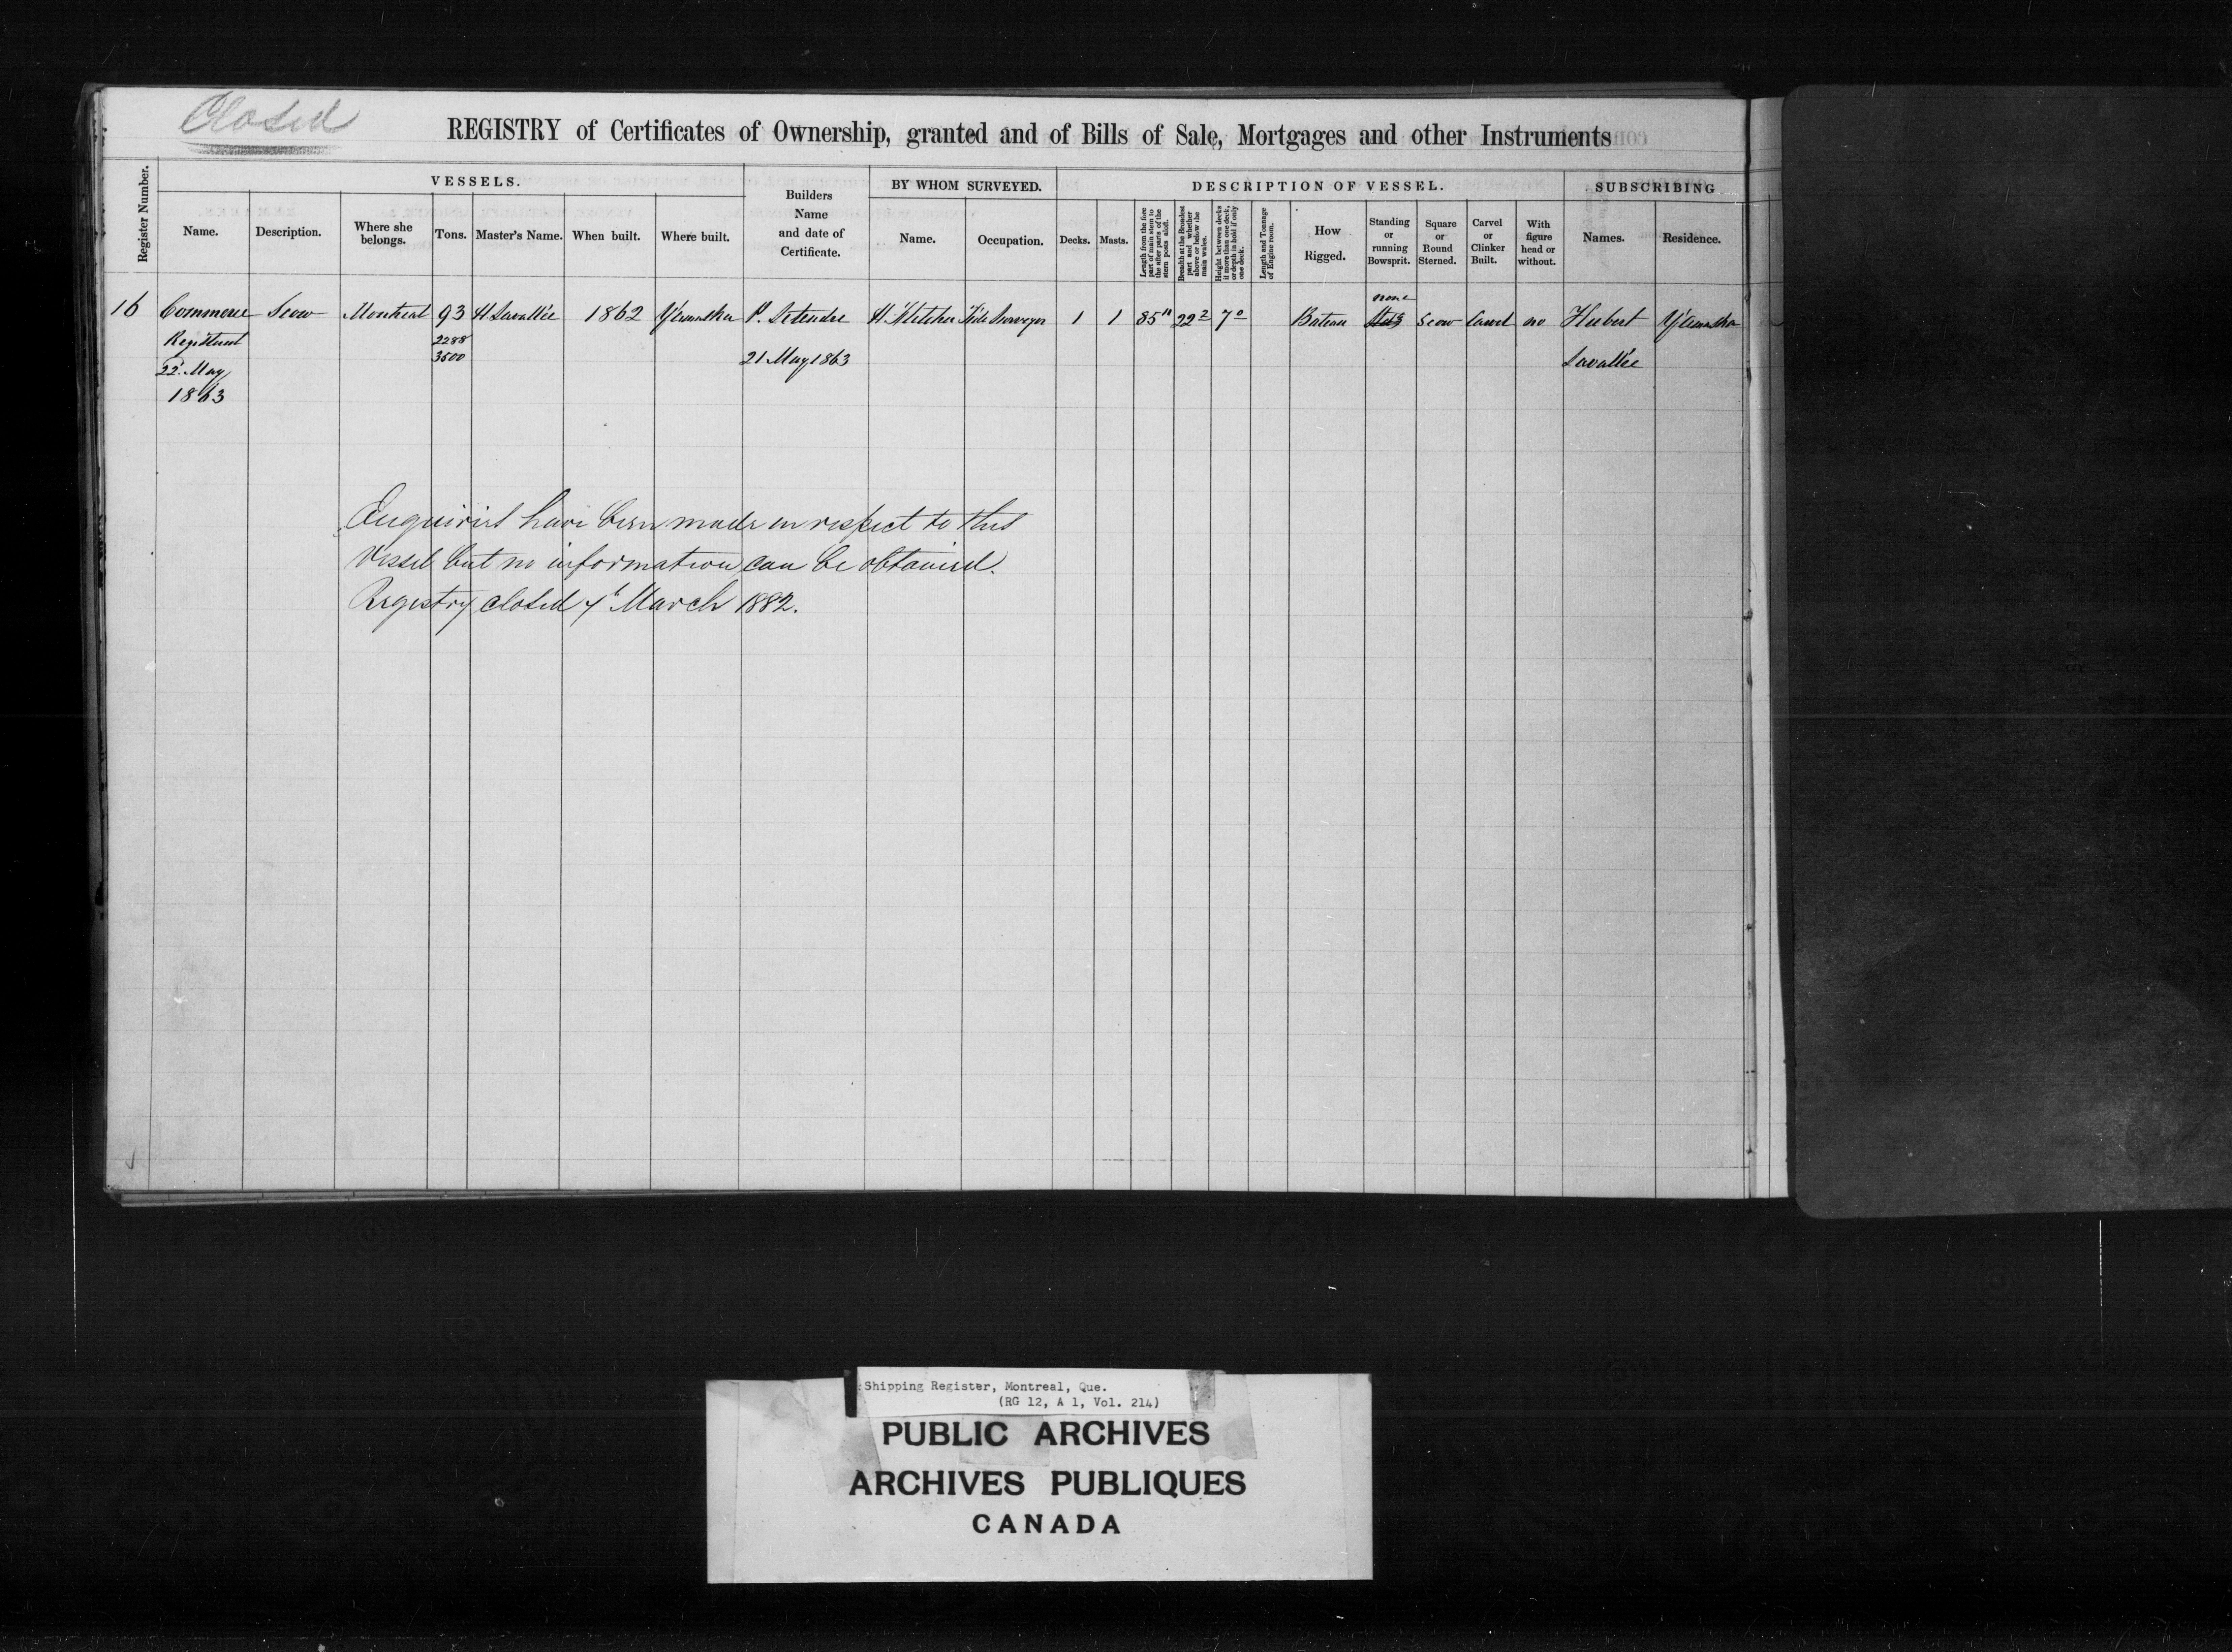 Closed
REGISTRY of Certificates of Ownership, granted and of Bills of Sale, Mortgages and other Instruments
Register Number.
VESSELS.
Name.
Description.
Where she belongs.
Tons.
Master's Name.
When built.
Where built.
Builders
Name
and date of
Certificate.
BY WHOM SURVEYED.
Name.
Occupation.
DESCRIPTION OF VESSEL.
Decks.
Masts.
Length from the fore
part of main stem to
the after parts of the
stern posts aloft.
Breadth at the Broadest
part and whether
above or below the
main wales.
Height between decks
if more than one deck,
or depth in hold if only
one deck.
Length and Tonnage
of Engine room.
How
Rigged.
Standing
or
running
Bowsprit.
Square
or
Round
Sterned.
Carvel
or
Clinker
Built.
With
figure
head or
without.
SUBSCRIBING
Names.
Residence.
none
16 Commerce Scow Montreal 93 H Lavallée 1862 Yamaska P. Letendre H. Fletcher Tide Surveyor 1 1 85 11 22 2 7 0 Bateau Scow Carvel no Hubert Yamaska
Registered 2288
22 May 3500 21 May 1863 Lavallée
1863
Enquiries have been made in respect to this
Vessel but no information can be obtained.
Registry closed 7h March 1882.
Shipping Register, Montreal, Que.
(RG 12, A 1, Vol. 214)
PUBLIC ARCHIVES
ARCHIVES PUBLIQUES
CANADA